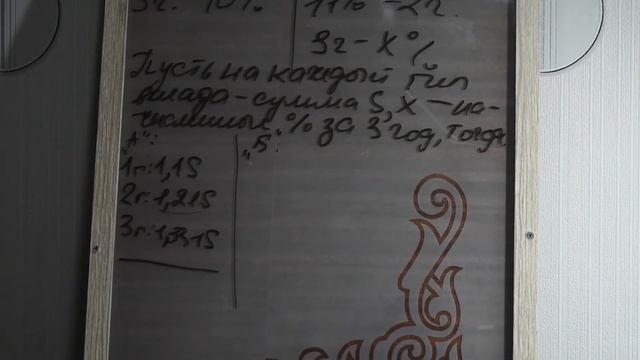 3г. 10% 11% - 2г.
3г - X%
Пусть на каждый тип
вклада - сумма S, X - на-
численные % за 3 год, тогда
"А": "Б":
1г: 1,1S
2г: 1,21S
3г: 1,331S